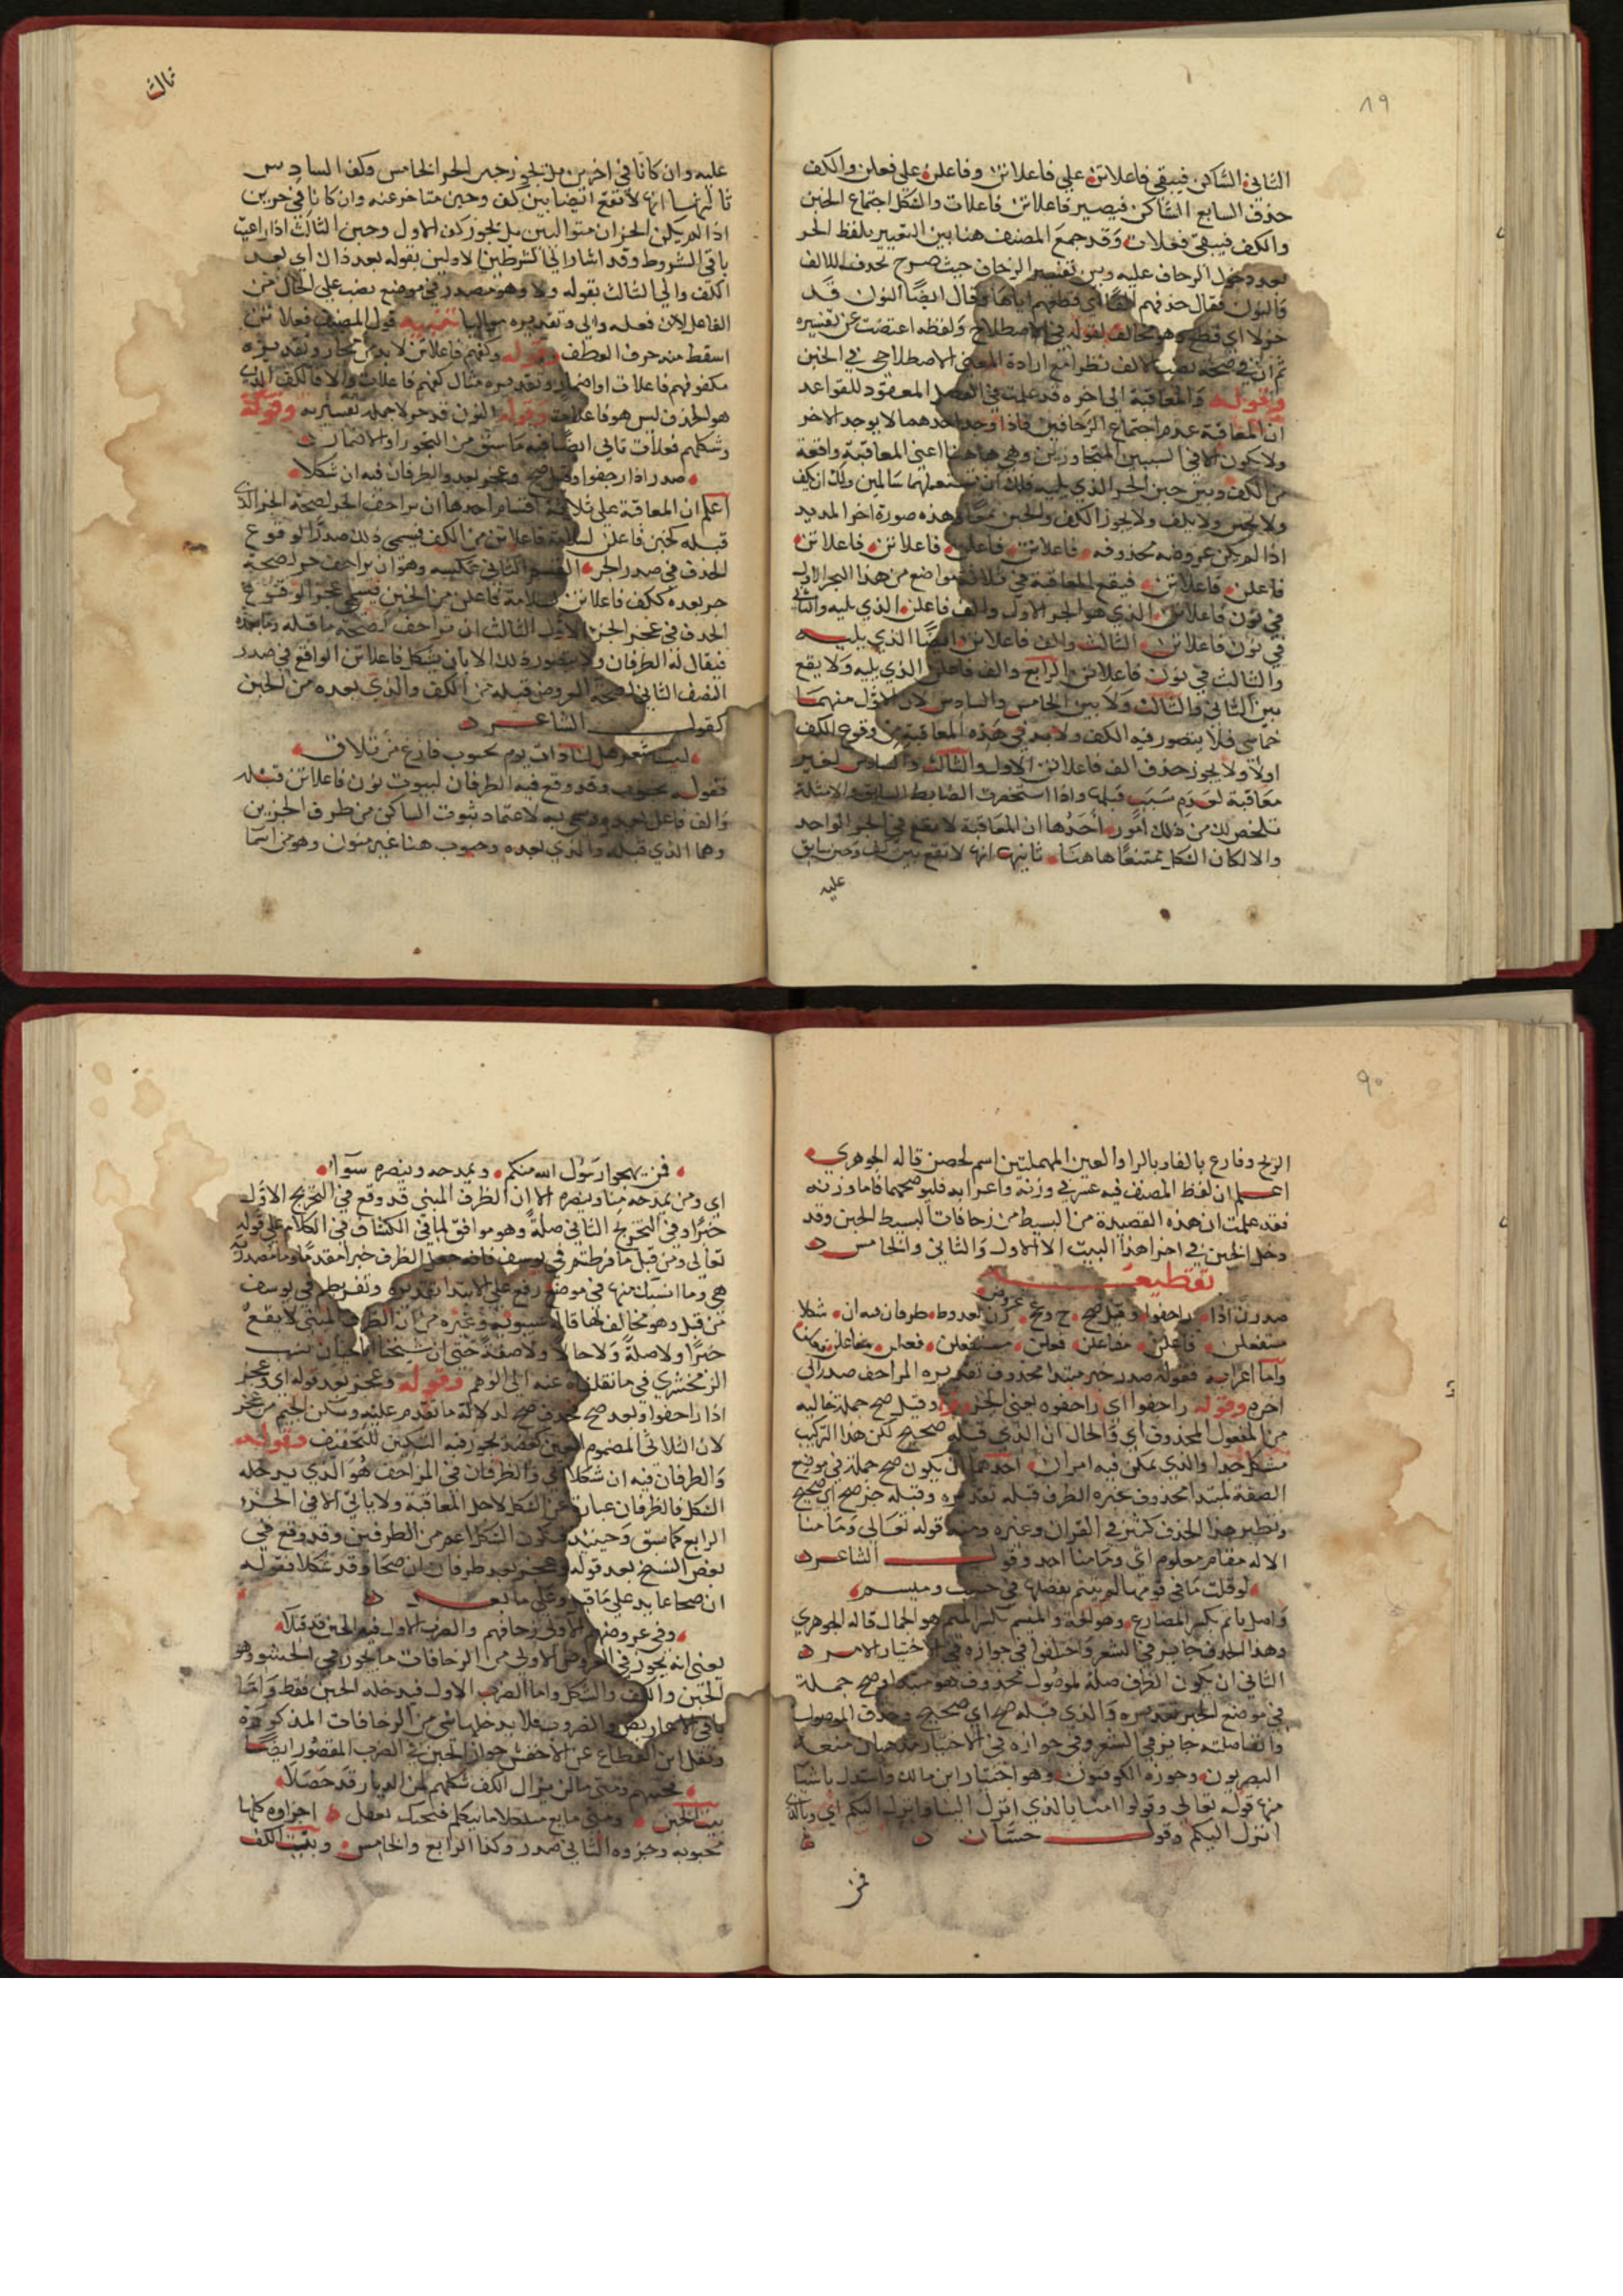 ٨٩
الثاني الساكن فيبقي فاعلاتن علي فاعلاتن وفاعلن علي فعلن والكف
حذف السابع الساكن فيصير فاعلاتن فاعلات والشكل اجتماع الخبن
والكف فيبقي فعلات وقد جمع المصنف هنا بين التعبير بلفظ الجز
بعد دخول الزحاف عليه وبين تفسير الزحاف حيث صرح بحذف الالف
والنون فقال حذفهم الفا اي قطعهم اياها وقال ايضا النون قد
خولا اي قطع وهو مخالف لقوله في الاصطلاح ولفظه اعتضت عن تفسيره
ثم ان في صحة نصب الالف نظر مع ارادة المعني الاصطلاحي في الخبن
وقوله والمعاقبة الي اخره قد علمت في الفصل المعقود للقواعد
ان المعاقبة عدم اجتماع الزحافين فاذا وجد احدهما لا يوجد الاخر
ولا يكون الا في السببين المتجاورين وهي هاهنا اعني المعاقبة واقعة
من الكف وبين خبن الجز الذي يليه فلك ان تستعملهما سالمين ولك ان تكف
ولا تخبن ولا يكف ولا يجوز الكف والخبن معا وهذه صورة اجزا المديد
اذا لم يكن عروضه محذوفه فاعلاتن فاعلن فاعلاتن فاعلاتن
فاعلن فاعلاتن فيقع المعاقبة في ثلاثة مواضع من هذا البحر الاول
في نون فاعلاتن الذي هو الجز الاول والف فاعلن الذي يليه والثاني
في نون فاعلاتن الثالث والف فاعلاتن ايضا الذي يليه
والثالث في نون فاعلاتن الرابع والف فاعلن الذي يليه ولا يقع
بين الثاني والثالث ولا بين الخامس والسادس لان الاول منهما
خماسي فلا يتصور فيه الكف ولا بد في هذه المعاقبة من وقوع الكف
اولا ولا يجوز حذف الف فاعلاتن الاول والثالث والسادس لغير
معاقبة لعدم سبب قبلها واذا استحضرت الضابط السابق والامثلة
تلخص لك من ذلك امور احدها ان المعاقبة لا تقع في الجز الواحد
والا لكان الشكل ممتنعا هاهنا ثانيها انها لا تقع بين كف وخبن سابق
عليه
ثالث
عليه وان كانا في اخرين بل يجوز خبن الجز الخامس وكف السادس
ثالثها انها لا تقع ايضا بين كف وخبن متاخر عنه وان كانا في جزين
اذا لم يكن الجزان متواليين بل يجوز كف الاول وخبن الثالث اذا راعيت
باقي الشروط وقد اشار الي الشرطين الاولين بقوله بعد ذاك اي بعد
الكف والي الثالث بقوله ولا وهو مصدر في موضع نصب علي الحال من
الفاعل لان فعله والي وتقديره مواليا تنبيه قول المصنف فعلاتن
اسقط منه حرف العطف وقوله وكفهم فاعلاتن لا بد من مجاز وتقديره
مكفوفهم فاعلات او اضمار وتقديره مثال كفهم فاعلات والا فالكف الذي
هو الحذف ليس هو فاعلات وقوله النون قد خولا جمله تفسيريه وقوله
وشكلهم فعلات ياتي ايضا فيه ما سبق من التجوز او الاضمار
صدر اذا زاحفوا وقبل صح وعجز بعد والطرفان فيه ان شكلا
اعلم ان المعاقبة علي ثلاثة اقسام احدها ان يزاحف الجز لصحة الجز الذي
قبله كخبن فاعلن لسلامة فاعلاتن من الكف فيسمي ذلك صدرا لوقوع
الحذف في صدر الجز القسم الثاني عكسه وهو ان يزاحف جز لصحة
جز بعده ككف فاعلاتن لسلامة فاعلن من الخبن فيسمي عجزا لوقوع
الحذف في عجز الجز الاول الثالث ان يزاحف لصحة ما قبله وما بعده
فيقال له الطرفان ولا يتصور ذلك الا بان يشكل فاعلاتن الواقع في صدر
النصف الثاني لصحة العروض قبله من الكف والذي بعده من الخبن
كقول الشاعر
ليت شعري هل لنا ذات يوم بجنوب فارع من تلاق
فقوله بجنوب وقد وقع فيه الطرفان لثبوت نون فاعلاتن قبله
والف فاعلن بعده وسمي به لاعتماد ثبوت الساكن من طرف الجزين
وهما الذي قبله والذي بعده وجنوب هنا غير منون وهو من اسما
٩٠
الريح وفارع بالفاء وبالرا والعين المهملتين اسم لحصن قاله الجوهري
اعلم ان لفظ المصنف فيه عسر في وزنه واعرابه فلنوضحهما فاما وزنه
فقد علمت ان هذه القصيدة من البسيط من زحافات البسيط الخبن وقد
دخل الخبن في اجزا هذا البيت الا الاول والثاني والخامس
تقطيعه
صدرن اذا زاحفوا وقبل صح وعجزن بعد وط طرفان فيه ان شكلا
مستفعلن فاعلن مفاعلن فعلن مستفعلن فعلن مفاعلن
واما اعرابه فقوله صدر خبر مبتدا محذوف تقديره المزاحف صدر الي
اخره وقوله زاحفوا اي زاحفوه يعني الجز وقبل صح جملة حاليه
من المفعول المحذوف اي والحال ان الذي قبله صحيح لكن هذا التركيب
مشكل جدا والذي يمكن فيه امران احدهما ان يكون صح جملة في موضع
الصفة لمبتدا محذوف خبره الظرف قبله تقديره وقبله جز صح اي صحيح
ونظير هذا الحذف كثير في القران وغيره ومنه قوله تعالي وما منا
الا له مقام معلوم اي وما منا احد وقول الشاعر
لو قلت ما في قومها لم تيثم يفضلها في حسب وميسم
واصل ياثم بكسر المضارع وهو لغة والميسم بكسر الميم هو الجمال قاله الجوهري
وهذا الحذف جايز في الشعر واختلفوا في جوازه في الاختيار الامر
الثاني ان يكون الظرف صلة لموصول محذوف هو مبتدا وصح جملة
في موضع الخبر تقديره والذي قبله صح اي صحيح وحذف الموصول
وابقا صلته جايز في الشعر وفي جوازه في الاختيار مذهبان منعه
البصريون وجوزه الكوفيون وهو اختيار ابن مالك واستدل باشيا
منها قوله تعالي وقولوا امنا بالذي انزل الينا وانزل اليكم اي وبالذي
انزل اليكم وقول حسان
فمن
فمن يهجوا رسول الله منكم ويمدحه وينصره سواء
اي ومن يمدحه منا وينصره الا ان الظرف المبني قد وقع في التخريج الاول
خبرا وفي التخريج الثاني صلة وهو موافق لما في الكشاف في الكلام علي قوله
تعالي ومن قبل ما فرطتم في يوسف فانه جعل الظرف خبرا مقدما وما مصدرية
هي وما انسبك منها في موضع رفع علي الابتدا تقديره وتفريطكم في يوسف
من قبل وهو مخالف لما قاله سيبويه وغيره من ان الظرف المبني لا يقع
خبرا ولا صلة ولا حالا ولا صفة حتي ان شيخنا ابا حيان نسب
الزمخشري في ما نقلناه عنه الي الوهم وقوله وعجز بعد قوله اي وعجز
اذا زاحفوا وبعد صح فحذف صح لدلالة ما تقدم عليه وسكن الجيم من عجز
لان الثلاثي المضموم العين كعضد يجوز فيه التسكين للتخفيف وقوله
والطرفان فيه ان شكلا اي والطرفان في المزاحف هو الذي يدخله
الشكل فالطرفان عبارة عن الشكل لاجل المعاقبة ولا ياتي الا في الجزء
الرابع كما سبق وحينئذ فيكون الشكل اعم من الطرفين وقد وقع في
بعض النسخ بعد قوله وعجز بعد طرفان ان صحا وقد شكلا فقوله
ان صحا عايد علي ما قبل وعلي ما بعد
وفي عروضهم الاولي زحافهم والضرب الاول فيه الخبن قد قبلا
يعني انه يجوز في العروض الاولي من الزحافات ما يجوز في الحشو وهو
الخبن والكف والشكل واما الضرب الاول فيدخله الخبن فقط واما
باقي الاعاريض والضروب فلا يدخلها شي من الزحافات المذكورة
ونقل ابن القطاع عن الاخفش جواز الخبن في الضرب المقصور ايضا
فخبنهم ومتي مالن يزال الكف شكلهم لمن الديار قد حصلا
بيت الخبن ومتي ما يع منك كلاما يتكلم فيجبك بعقل اجزاوه كلها
مخبونه وجزوه الثاني صدر وكذا الرابع والخامس وبيت الكف